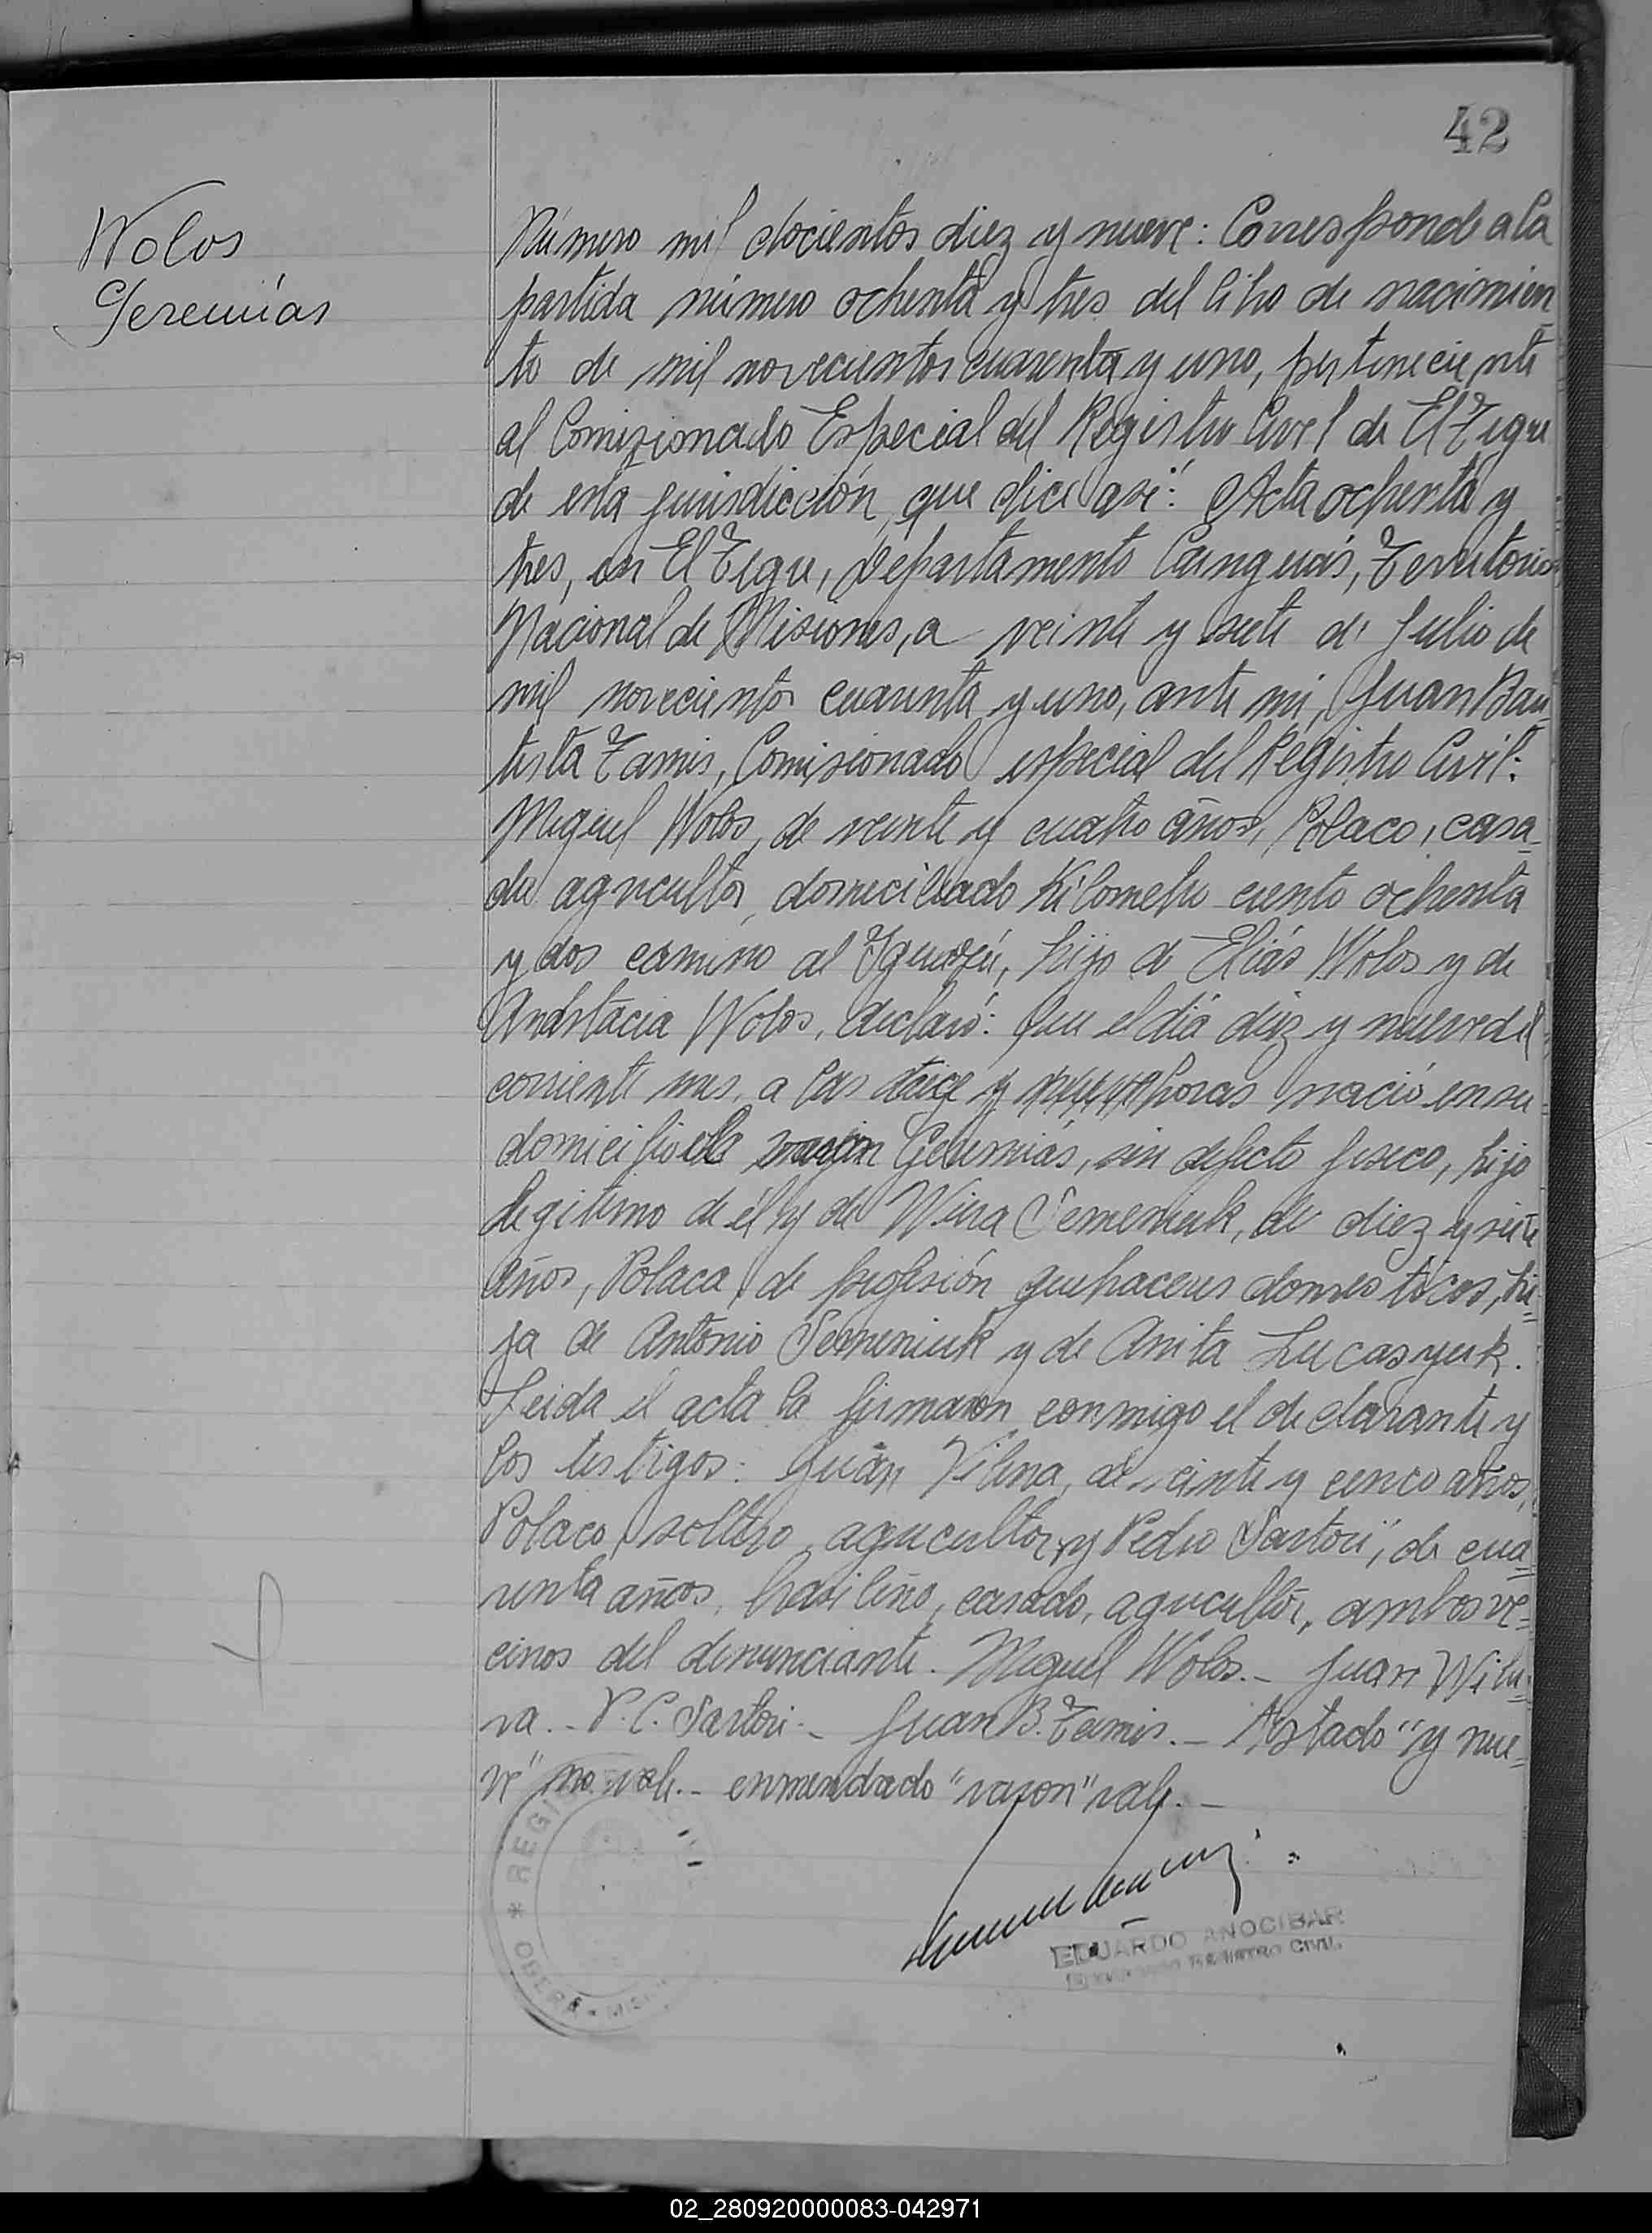 42
Wolos
Geremías
Número mil docientos diez y nueve: Corresponde a la
partida número ochenta y tres del libro de nacimien-
to de mil novecientos cuarenta y uno, perteneciente
al Comizionado Especial del Registro Civil de El Tigre
de esta jurisdicción, que dice asi: "Acta ochenta y
tres, en El Tigre, Departamento Cainguás, Territorio
Nacional de Misiones, a veinte y siete de Julio de
mil novecientos cuarenta y uno, ante mi, Juan Bau-
tista Tamis, Comisionado especial del Registro Civil:
Miguel Wolos, de veinte y cuatro años, Polaco, casa-
do agricultor, domiciliado Kilometro ciento ochenta
y dos camino al Iguazú, hijo de Eliás Wolos y de
Anastacia Wolos, declaró: Que el dia diez y nueve del
corriente mes, a las doice y nueve horas nació en su
domicilio el varon Geremiás, sin defecto fisico, hijo
legitimo de él y de Wiera Semeniuk, de diez y siete
años, Polaca, de profesión quehaceres domesticos, hi-
ja de Antonio Semeniuk y de Anita Lucasyuk.
Leida el acta la firmaron conmigo el declarante y
los testigos: Juan Vilma, de veinte y cinco años,
Polaco, soltero, agricultor, y Pedro Sartori, de cua-
renta años, brasileño, casado, agricultor, ambos ve-
cinos del denunciante. Miguel Wolos.- Juan
P. C. Sartori.- Juan B. Tamis.- Testado "y nue-
ve" no vale.- enmendado "varon" vale.-
REGI
OBERÁ - MISI
EDUARDO ANOCIBAR
REGISTRO CIVIL
02_280920000083-042971